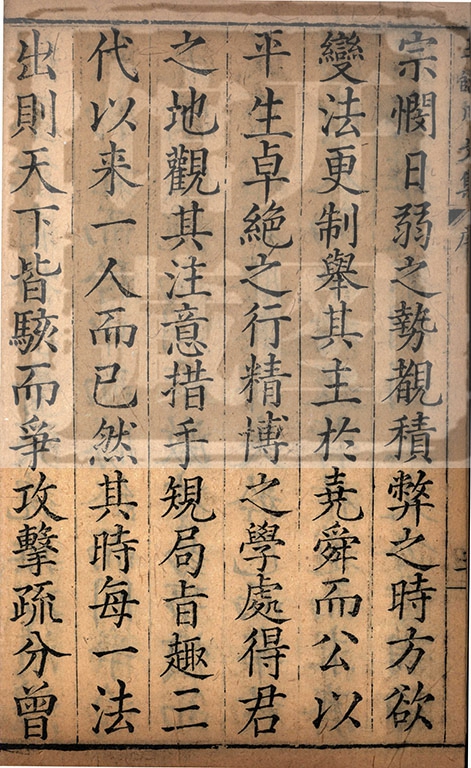 宗憫日弱之勢覩積弊之時方欲
變法更制舉其主於堯舜而公以
平生卓絶之行精博之學處得君
之地觀其注意措手規局旨趣三
代以来一人而已然其時每一法
出則天下皆駭而爭攻擊疏分曾